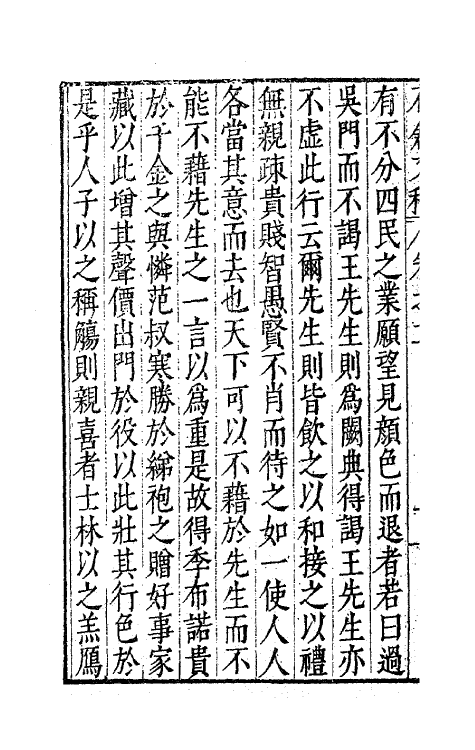 有不分四民之業願望見顏色而退者若曰過
吳門而不謁王先生則為闕典得謁王先生亦
不虛此行云爾先生則皆飲之以和接之以禮
無親疎貴賤智愚賢不肖而待之如一使人人
各當其意而去也天下可以不藉於先生而不
能不藉先生之一言以為重是故得季布諾貴
於千金之與憐范叔寒勝於綈袍之贈好事家
藏以此增其聲價出門於役以此壯其行色於
是乎人子以之稱觴則親喜者士林以之羔鴈